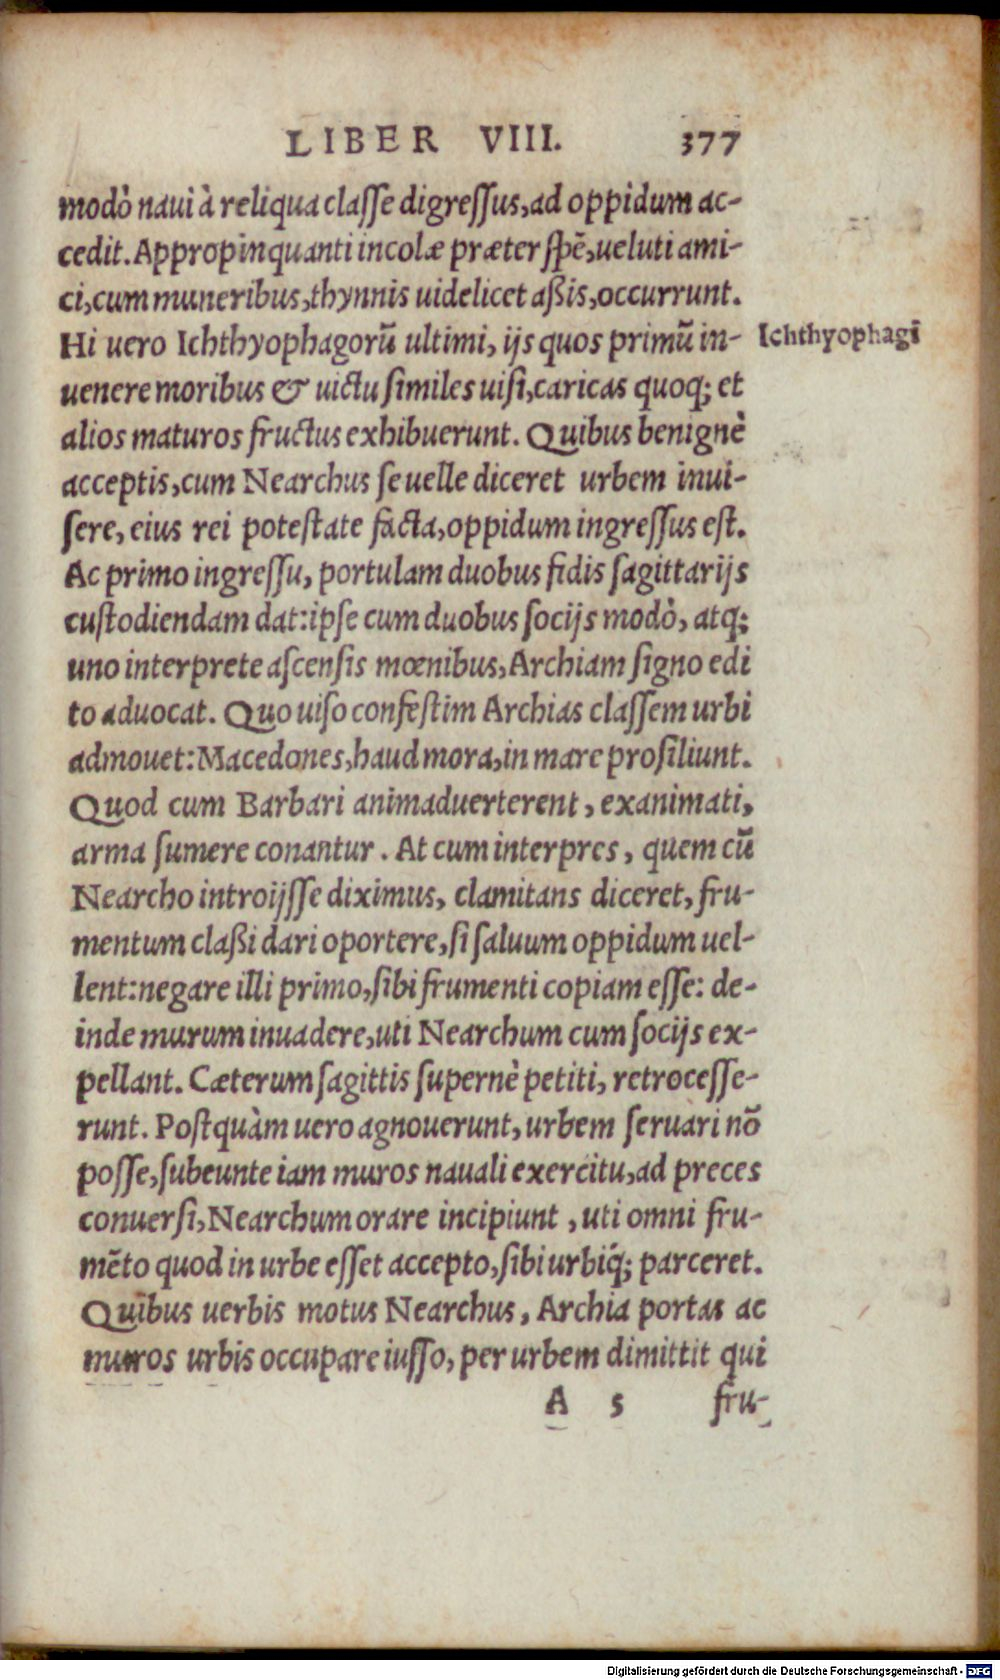 LIBER VIII. 377
modò naui à reliqua classe digressus, ad oppidum ac-
cedit. Appropinquanti incolæ præter spē, ueluti ami-
ci, cum muneribus, thynnis uidelicet aßis, occurrunt.
Hi uero Ichthyophagorū ultimi, ijs quos primū in-
Ichthyophagi
uenere moribus & uictu similes uisi, caricas quoq; et
alios maturos fructus exhibuerunt. Quibus benignè
acceptis, cum Nearchus se uelle diceret urbem inui-
sere, eius rei potestate facta, oppidum ingressus est.
Ac primo ingressu, portulam duobus fidis sagittarijs
custodiendam dat: ipse cum duobus socijs modò, atq;
uno interprete ascensis mœnibus, Archiam signo edi
to aduocat. Quo uiso confestim Archias classem urbi
admouet: Macedones, haud mora, in mare prosiliunt.
Quod cum Barbari animaduerterent, exanimati,
arma sumere conantur. At cum interpres, quem cū
Nearcho introijsse diximus, clamitans diceret, fru-
mentum claßi dari oportere, si saluum oppidum uel-
lent: negare illi primo, sibi frumenti copiam esse: de-
inde murum inuadere, uti Nearchum cum socijs ex-
pellant. Cæterum sagittis supernè petiti, retrocesse-
runt. Postquàm uero agnouerunt, urbem seruari nō
posse, subeunte iam muros nauali exercitu, ad preces
conuersi, Nearchum orare incipiunt, uti omni fru-
mēto quod in urbe esset accepto, sibi urbiq́; parceret.
Quibus uerbis motus Nearchus, Archia portas ac
muros urbis occupare iusso, per urbem dimittit qui
A 5 fru-
Digitalisierung gefördert durch die Deutsche Forschungsgemeinschaft - DFG